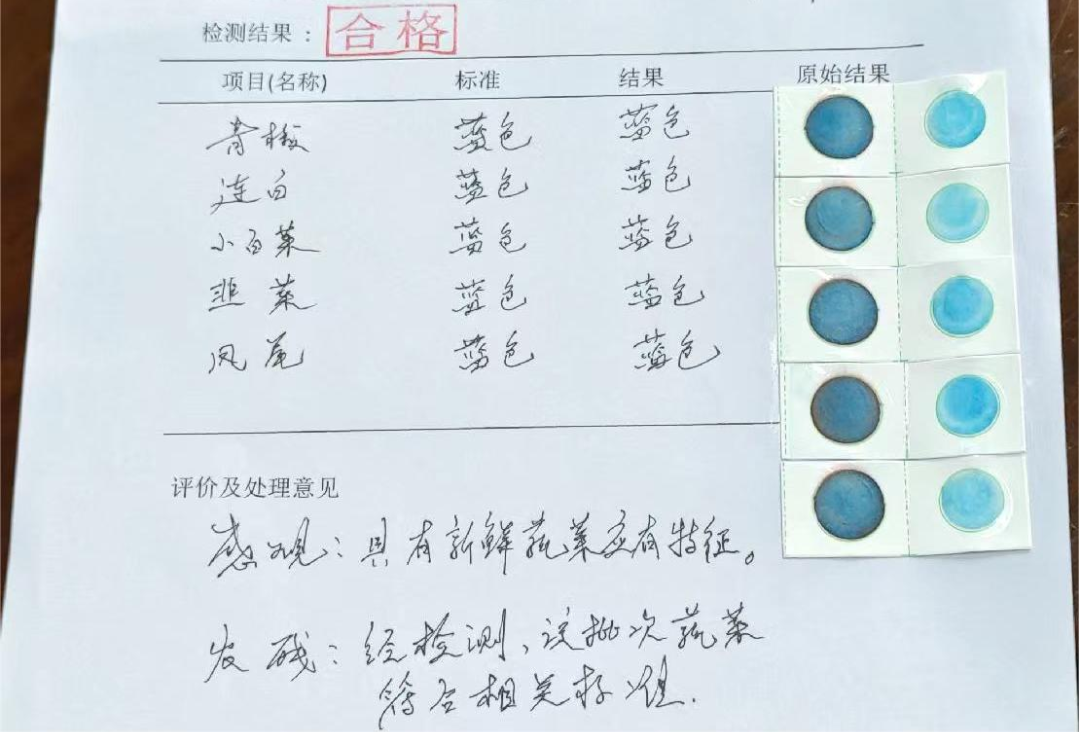 检测结果： 合格
项目(名称) 标准 结果 原始结果
青椒 蓝色 蓝色
连白 蓝色 蓝色
小白菜 蓝色 蓝色
韭菜 蓝色 蓝色
凤尾 蓝色 蓝色
评价及处理意见
感观：具有新鲜蔬菜应有特征。
农残：经检测，该批次蔬菜
符合相关标准.